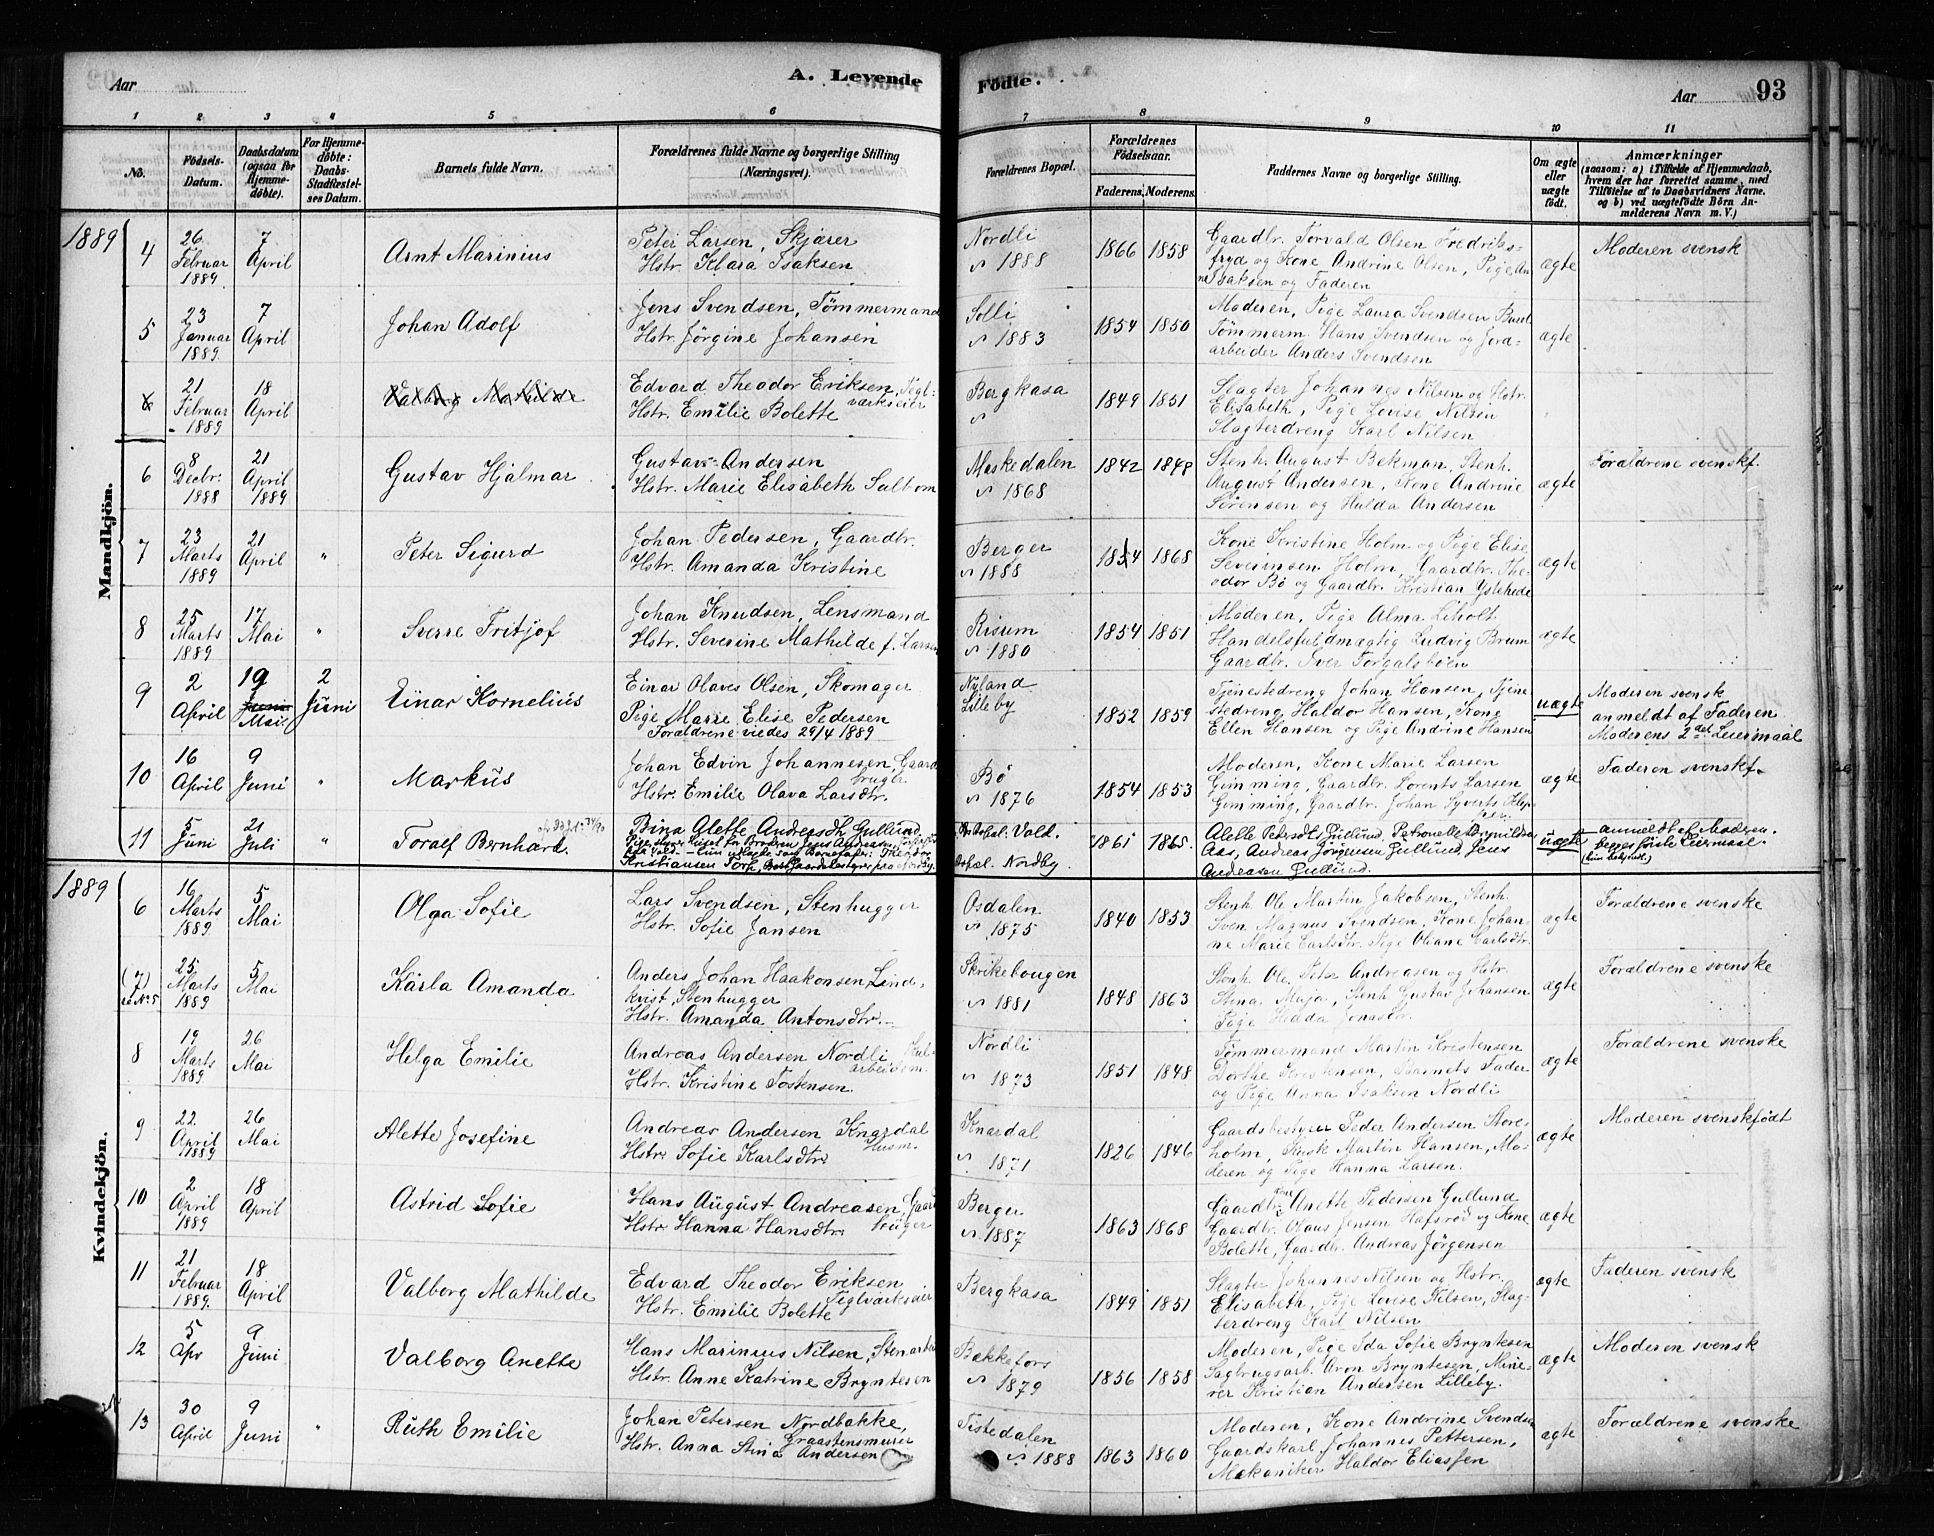 Aar
A. Levende
Fødte.
Aar
93
1
2
3
4
5
6
7
8
9
10
11
No.
Fødsels-
Datum.
Daabsdatum
(ogsaa for
Hjemme-
døbte).
For Hjemme-
døbte:
Daabs-
Stadfæstel-
ses Datum.
Barnets fulde Navn.
Forældrenes fulde Navne og borgerlige Stilling
(Næringsvei).
Forældrenes Bopæl.
Forældrenes
Fødselsaar.
Faderens.
Moderens.
Faddernes Navne og borgerlige Stilling.
Om ægte
eller
uægte
født.
Anmærkninger
(saasom: a) i Tilfælde af Hjemmedaab,
hvem der har forrettet samme, med
Tilføielse af to Daabsvidners Navne.
og b) ved uægtefødte Børn An-
melderens Navn m. V.)
Mandkjön.
1889
4
26
Februar
1889
7
April
Arnt Marinius
Peter Larsen, Skjærer
Hstr. Klara Isaksen
Nordli
1888
1866
1858
Gaardbr. Torvald Olsen Fredriks-
fryd og Kone Andrine Olsen, Pige An
ne Isaksen og Faderen
ægte
Moderen svensk
5
23
Januar
1889
7
April
Johan Adolf
Jens Svendsen, Tømmermand
Hstr. Jörgine Johansen
Solli
1883
1854
1850
Moderen, Pige Laura Svendsen
Tømmerm Hans Svendsen og Jord-
arbeider Anders Svendsen
ægte
21
Februar
1889
18
April
Valborg Mathilde
Edvard Theodor Eriksen, Tegl-
værkseier
Hstr. Emilie Bolette
Bergkasa
1849
1851
Slagter Johannes Nilsen og Hstr.
Elisabeth, Pige Lovise Nilsen
Slagterdreng Karl Nilsen
6
8
Decbr.
1888
21
April
1889
Gustav Hjalmar
Gustav Andersen
Hstr. Marie Elisabeth Salbom
Maskedalen
1868
1842
1848
Stenh. August Bekman, Stenh.
August Andersen, Kone Andrine
Sørensen og Hulda Andersen
ægte
Forældrene svenskf.
7
23
Marts
1889
21
April
"
Peter Sigurd
Johan Pedersen, Gaardbr.
Hstr. Amanda Kristine
Berger
1888
1854
1868
Kone Kristine Holm og Pige Elise
Severinsen Holm, Gaardbr. The-
odor Bö og Gaardbr. Kristian Ystehede
ægte
8
25
Marts
1889
17
Mai
"
Sverre Fritjof
Johan Knudsen, Lensmand
Hstr. Severine Mathilde f. Larsen
Risum
1880
1854
1851
Moderen, Pige Alma Liholt
Handelsfuldmægtig Ludvig Brum
Gaardbr. Iver Torgalsbøen
ægte
9
2
April
19
Juni
Mai
2
Juni
Einar Kornelius
Einar Olaves Olsen, Skomager
Pige Marie Elise Pedersen
Forældrene viedes 29/4 1889
Nyland
Lilleby
1852
1859
Tjenestedreng Johan Hansen, Tjene
stedreng Haldor Hansen, Kone
Ellen Hansen og Pige Andrine Hansen
uægte
Moderen svensk
anmeldt af Faderen
Moderens 2det Leiermaal
10
16
April
9
Juni
"
Markus
Johan Edvin Johannesen, Gaard
bruger
Hstr. Emilie Olava Larsdtr.
Bö
1876
1854
1853
Moderen, Kone Marie Larsen
Gimming, Gaardbr. Lorents Larsen
Gimming, Gaardbr. Johan Syverts
ægte
Faderen svenskf.
11
5
Juni
21
Juli
"
Toralf Bernhard.
Bina Alette Andreasdtr. Gullund
Kristiansen Torp,
Vold.
Nordby.
1861
1865
Alette Petersdt. Gullund, Petronelle Brynildsen
Aas, Andreas Jørgensen Gullund, Jens
Andreasen Gullund.
uægte
anmeldt af Moderen.
begges første Leiermaal
Kvindekjön.
1889
6
16
Marts
1889
5
Mai
Olga Sofie
Lars Svendsen, Stenhugger
Hstr. Sofie Jansen
Osdalen
1875
1840
1853
Stenh. Ole Martin Jakobsen, Stenh.
Sven Magnus Svendsen, Kone Johan-
ne Marie Carlsdtr. Pige Oliane Carlsdtr.
ægte
Forældrene svenske
(7)
25
Marts
1889
5
Mai
Karla Amanda
Anders Johan Haakonsen Lind-
kvist, Stenhugger
Hstr. Amanda Antonsdtr.
Skrikebougen
1881
1848
1863
Stenh Ole Peter Andreasen og Hstr.
Stina Maja, Stenh Gustav Johansen
Pige Hedda Jonasdtr.
ægte
Forældrene svenske
8
19
Marts
1889
26
Mai
Helga Emilie
Andreas Andersen Nordli,
arbeidsm.
Hstr. Kristine Tostensen
Nordli
1873
1851
1848
Tømmermand Martin Kristensen
Dorthe Kristensen, Barnets Fader
og Pige Anna Isaksen Nordli
ægte
Forældrene svenske
9
22
April
1889
26
Mai
Alette Josefine
Andreas Andersen Knardal
Husm.
Hstr. Sofie Karlsdtr.
Knardal
1871
1826
1846
Gaardsbestyrer Peder Andersen Stores-
holm, Kusk Martin Hansen, Mo-
deren og Pige Hanna Larsen.
ægte
Moderen svenskfødt
10
2
April
1889
18
April
Astrid Sofie
Hans August Andreasen, Gaard
bruger
Hstr. Hanna Hansdtr.
Berger
1887
1863
1868
Gaardbr. Kone Anette Pedersen Gullund
Gaardbr. Olaus Jensen Hafsrød og Kone
Bolette, Gaardbr. Andreas Jørgensen
ægte
11
21
Februar
1889.
18
April
Valborg Mathilde
Edvard Theodor Eriksen
Teglværkseier
Hstr. Emilie Bolette
Bergkasa
1849
1851
Slagter Johannes Nilsen og Hstr.
Elisabeth, Pige Lovise Nilsen, Slag-
terdreng Karl Nilsen
ægte
Faderen svensk
12
5
Apr
9
Juni
Valborg Anette
Hans Marinius Nilsen, Stenarb
Hstr. Anne Katrine Bryntesen
Bækkefors
1879
1856
1858
Moderen, Pige Ida Sofie Bryntesen
Sagbrugsarb. Aron Bryntesen, Mine-
rer Kristian Andersen Lilleby.
ægte
Moderen svensk
13
30
April
9
Juni
"
Ruth Emilie
Johan Petersen Nordbakke,
Graastensmurer
Hstr. Anna Stina Andersen
Tistedalen
1888
1863
1860
Moderen, Kone Andrine Svendsen
Gaardskarl Johannes Pettersen,
Mekaniker Haldor Eliassen
ægte
Forældrene svenske